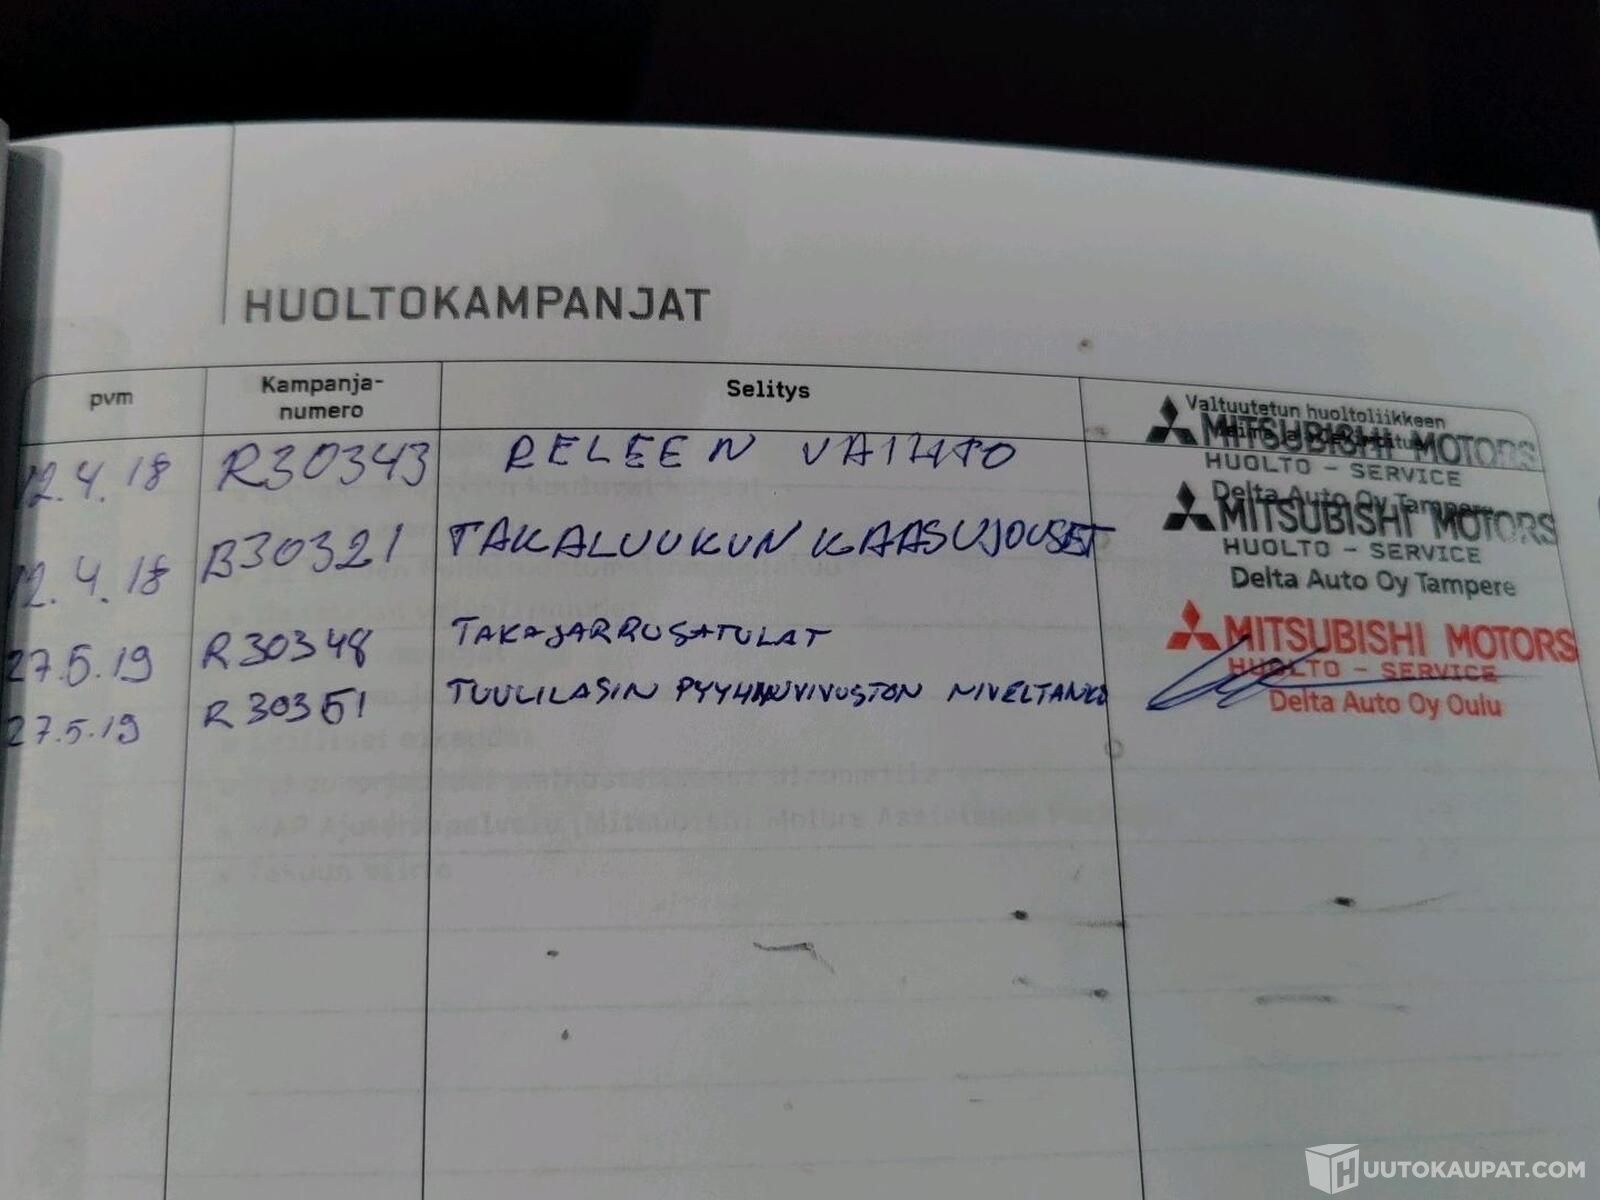 HUOLTOKAMPANJAT
pvm Kampanja-numero Selitys Valtuutetun huoltoliikkeen
MITSUBISHI MOTORS
HUOLTO - SERVICE
Delta Auto Oy Tampere
12.4.18 R30343 RELEEN VAIHTO
MITSUBISHI MOTORS
HUOLTO - SERVICE
Delta Auto Oy Tampere
12.4.18 B30321 TAKALUUKUN KAASUJOUSET
MITSUBISHI MOTORS
HUOLTO - SERVICE
Delta Auto Oy Oulu
27.5.19 R30348 TAKAJARRUSATULAT
27.5.19 R30351 TUULILASIN PYYHINVIVUSTON NIVELTANKO
HUUTOKAUPAT.COM